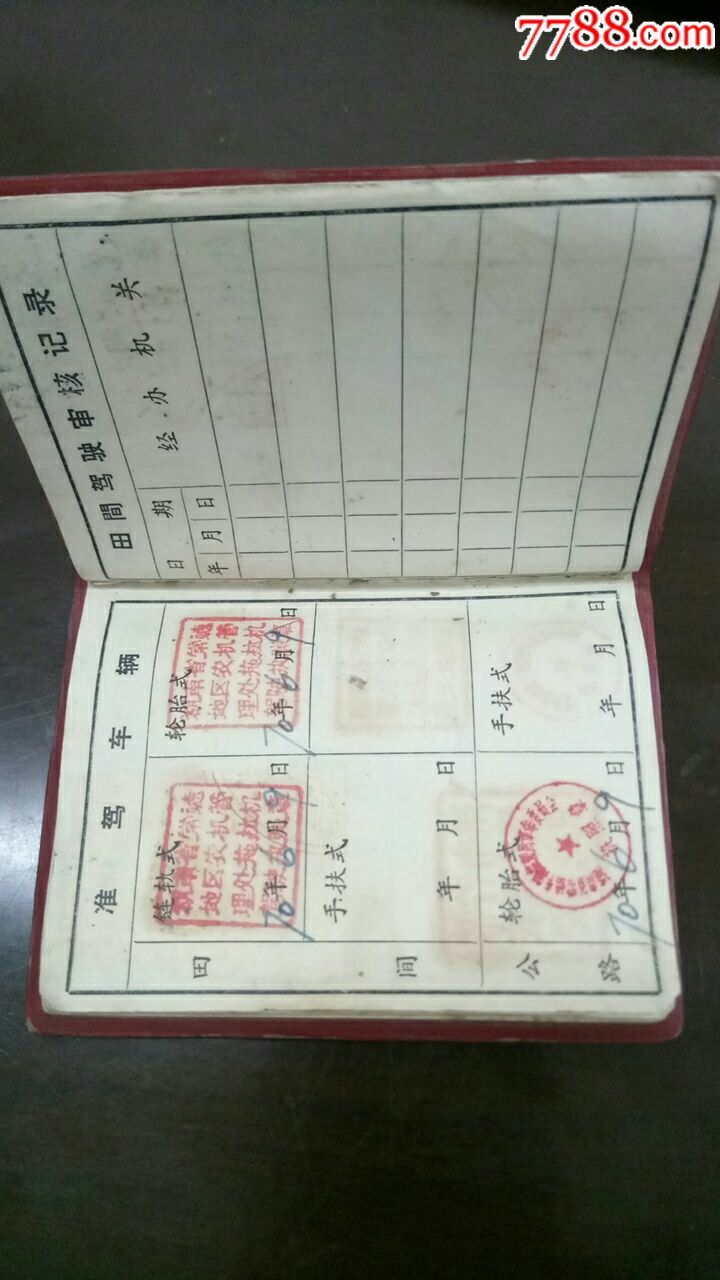 7788.com
田間驾驶审核记录
日期
经办机关
年
月
日
准驾车辆
田间
链轨式
湖南省常德
地区农机管
理处拖拉机
70年6月9日
轮胎式
湖南省常德
地区农机管
理处拖拉机
70年6月9日
手扶式
年 月 日
公路
轮胎式
70年6月9日
手扶式
年 月 日